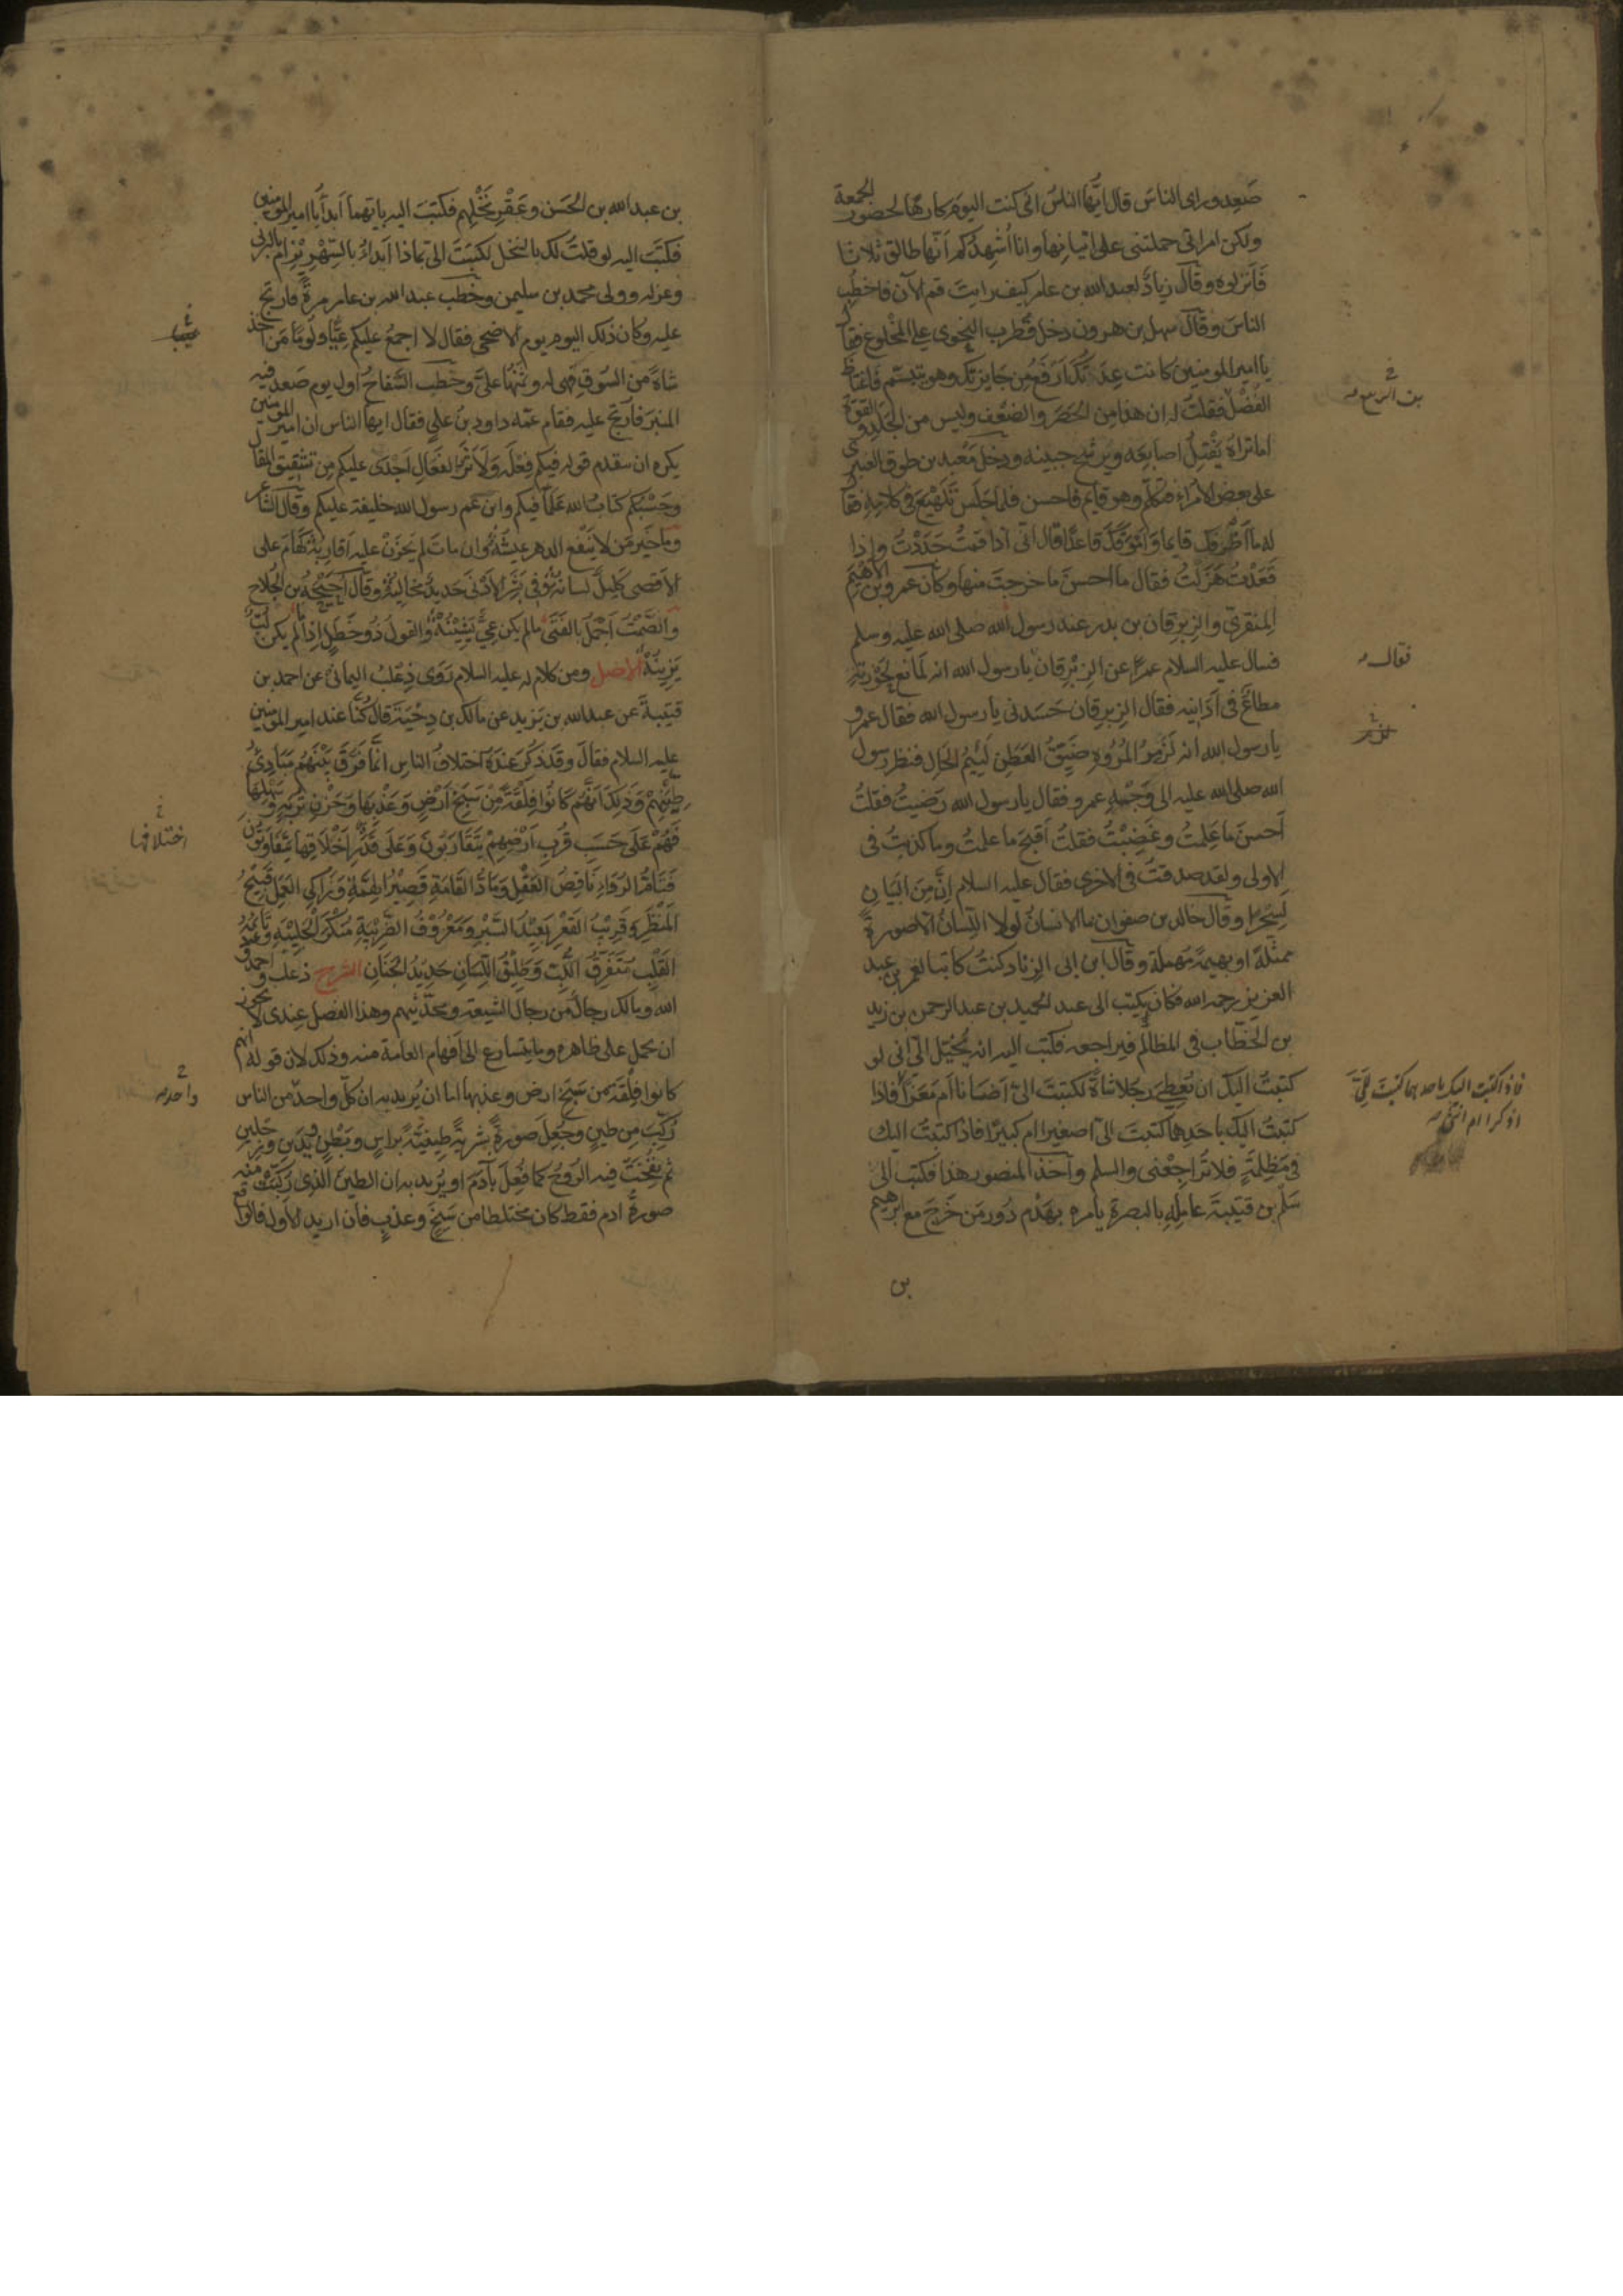 صَعِد وراى الناسَ قال ايّها الناسُ انى كنت اليوم كارهًا لحضور الجمعة
ولكن امراتى حملتنى على اتيانها وانا اُشهدكم اَنّها طالق ثلاثا
فَاَنزلوه وقال زيادٌ لعبد الله بن عامر كيف رايتَ قم الآن فاخطب
الناسَ وقال سهل بن هرون دخل قُطرب النحوى على المخلوع فقال
يا امير المومنين كانت عِدَتُكَ اَرْفَعُ من جايزتك وهو يتبسّم فاغتاظ
الفضل فقلتُ له ان هذا من الحَصَر والضعْف وليس من الجَلَد والقوّة
اما تراهُ يَفْتِلُ اصابعَه ويرشح جبينه ودخل مَعْبد بن طوق العنبرى
على بعض الامراء فتكلم وهو قايم فاحسن فلما جَلَسَ تَلَهْيَعَ فى كلامه فقال
له ما اَظْرفَك قايما وَاَمْوَقَكَ قاعدًا قال انّى اذا قمتُ جَدَدْتُ واذا
قَعَدْتُ هَزَلْتُ فقال ما احسنَ ما خرجتَ منها وكان عمرو بن الاَهْتم
المِنقرىّ والزِبرِقان بن بدر عند رسول الله صلى الله عليه وسلم
فسال عليه السلام عمرًا عن الزِبْرِقان يا رسول الله انه لَمانع لِحَوْزته
مطاعٌ فى اَدَانِيه فقال الزبرقان حَسَدنى يا رسول الله فقال عمرو
يا رسول الله انه لَزَمِرُ المُرُوة ضيّقُ العَطَن لَئِيمُ الخال فنظر رسول
الله صلى الله عليه الى وَجْهِ عمرو فقال يا رسول الله رَضيتُ فقلتُ
اَحسنَ ما عَلِمتُ وغَضِبْتُ فقلتُ اَقبحَ ما علمتُ وما كذبتُ فى
الاولى ولقد صدقتُ فى الاخرى فقال عليه السلام اِنَّ مِنَ البَيَانِ
لَسِحْرًا وقال خالد بن صفوان ما الانسانُ لولا اللِّسانُ الا صورةٌ
ممثّلةٌ او بهيمةٌ مُهملة وقال ابن ابى الزناد كنتُ كاتبا لعمر بن عبد
العزيز رحمه الله فكان يكتب الى عبد الحميد بن عبد الرحمن بن زيد
بن الخطّاب فى المظالم فيراجعه فكتب اليه انه يُخيّل الىّ انى لو
كتبتُ اليك ان تُعطِىَ رجلًا شاةً لكتبتَ الىّ اَضَانا اَم مَعَزا فاذا
كتبتُ اليك باحدهما كتبتَ الىّ اصغيرا ام كبيرًا فاذا كتبتُ اليك
فى مَظلِمَةٍ فلا تُراجِعْنى والسلم واخذ المنصور هذا فكتب الى
سَلْم بن قتيبةَ عاملِه بالبصرة يامره بهَدْم دُور مَن خَرجَ مع ابرهيم
بن
فقال
فاذا كتبت اليك باحدهما كتبتَ
اذكرا ام انثى
بن عبد الله بن الحَسَن وعَقْرِ نَخْلِهم فكتبَ اليه بايّهما اَبداُ يا امير المومنين
فكتَبَ اليه لو قلتُ لك بالنخل لكتبتَ الىّ بماذا اَبداُ بالسِّهْرِيز ام بالبرنى
وعزله وولى محمد بن سليمن وخطب عبد الله بن عامر مرةً فارتج
عليه وكان ذلك اليوم يوم الاضحى فقال لا اجمعُ عليكم عِيًّا ولُوْمًا مَن اخذ
شاةً من السوق فهى له وثمنُها علىَّ وخطب السَّفاحُ اول يوم صَعِد فيه
المنبرَ فاُرتج عليه فقام عمّه داود بنُ على فقال ايها الناس ان امير المومنين
يكره ان يتقدم قولُه فيكم فِعْلَه ولَاَثَرُ الفَعَالِ اَجْدَى عليكم مِن تشقيق المقال
وحَسْبُكم كتابُ الله عَلَمًا فيكم وابن عم رسول الله خليفة عليكم وقال الشاعر
وما خَيرُ مَن لا يَنفَع الدهر عَيشُهُ وان مات لم يَحزَنْ عليه اَقاربُهْ كَهَامٌ على
الاَقصى كليلٌ لسانُهُ وفى بَشَرِ الاَدْنى حَدِيدٌ مخالبُهْ وقال اُحَيْحَةُ بن الجُلاح
والصَّمْتُ اَجْمَلُ بالفَتَى ما لم يكن عِىٌّ يَشِينُهْ والقول ذُو خَطَلٍ اِذا ما لم يكن لُبٌّ
يَزِينُهْ الاصل ومن كلام له عليه السلام رَوَى ذِعْلبُ اليمانىُّ عن احمد بن
قتيبةَ عن عبد الله بن يَزيد عن مالك بن دِحْيَةَ قال كُنّا عند امير المومنين
عليه السلام فقال وقد ذُكِرَ عندَه اختلافُ الناس انّما فَرَّقَ بَيْنَهُمْ مَبَادِئُ
طِينِهِمْ وَذلِكَ اَنَّهُم كَانُوا فِلْقَةً مِنْ سَبَخِ اَرْضٍ وَعَذْبِهَا وَحَزْنِ تُرْبَةٍ وَسَهْلِهَا
فَهُمْ عَلَى حَسَبِ قُرْبِ اَرْضِهِمْ يَتَقَارَبُونَ وَعَلَى قَدْرِ اخْتِلَافِهَا يَتَفَاوَتُونَ
فَتَامُّ الرُوَاءِ نَاقِصُ العَقْلِ وَمَادُّ القَامَةِ قَصِيْرُ الهِمَّةِ وَزَاكِى العَمَلِ قَبِيْحُ
المَنْظَرِ وَقَرِيْبُ القَعْرِ بَعِيْدُ السَّبْرِ وَمَعْرُوْفُ الضَّرِيْبَةِ مُنْكَرُ الجَلِيْبَةِ وتائهُ
القَلْبِ مُتَفَرِّقُ اللُّبِّ وَطَلِيْقُ اللِّسَانِ حَدِيْدُ الجَنَانِ الشرح ذعلب واحمد وعبد
الله ومالك رجالٌ من رجال الشيعة ومحدّثيهم وهذا الفصل عندى لا يجوز
ان يحمل على ظاهره وما يتسارع الى اَفهام العامة منه وذلك لان قوله انهم
كانوا فِلْقَةً من سَبَخ ارض وعذبها اما ان يُريد به ان كلّ واحد من الناس
رُكِّبَ مِن طينٍ وجُعِلَ صورةً بشريةً طينيّةً براسٍ وبَطْنٍ ويدَين ورِجْلين
ثم نُفِخَتْ فيه الروحُ كما فُعِلَ بآدمَ او يُريد به ان الطينَ الذى رُكِّبَتْ منه
صورةُ ادم فقط كان مختلطا من سَبَخٍ وعذبٍ فان اريد الاول فالواقع
اختلافها
واحد